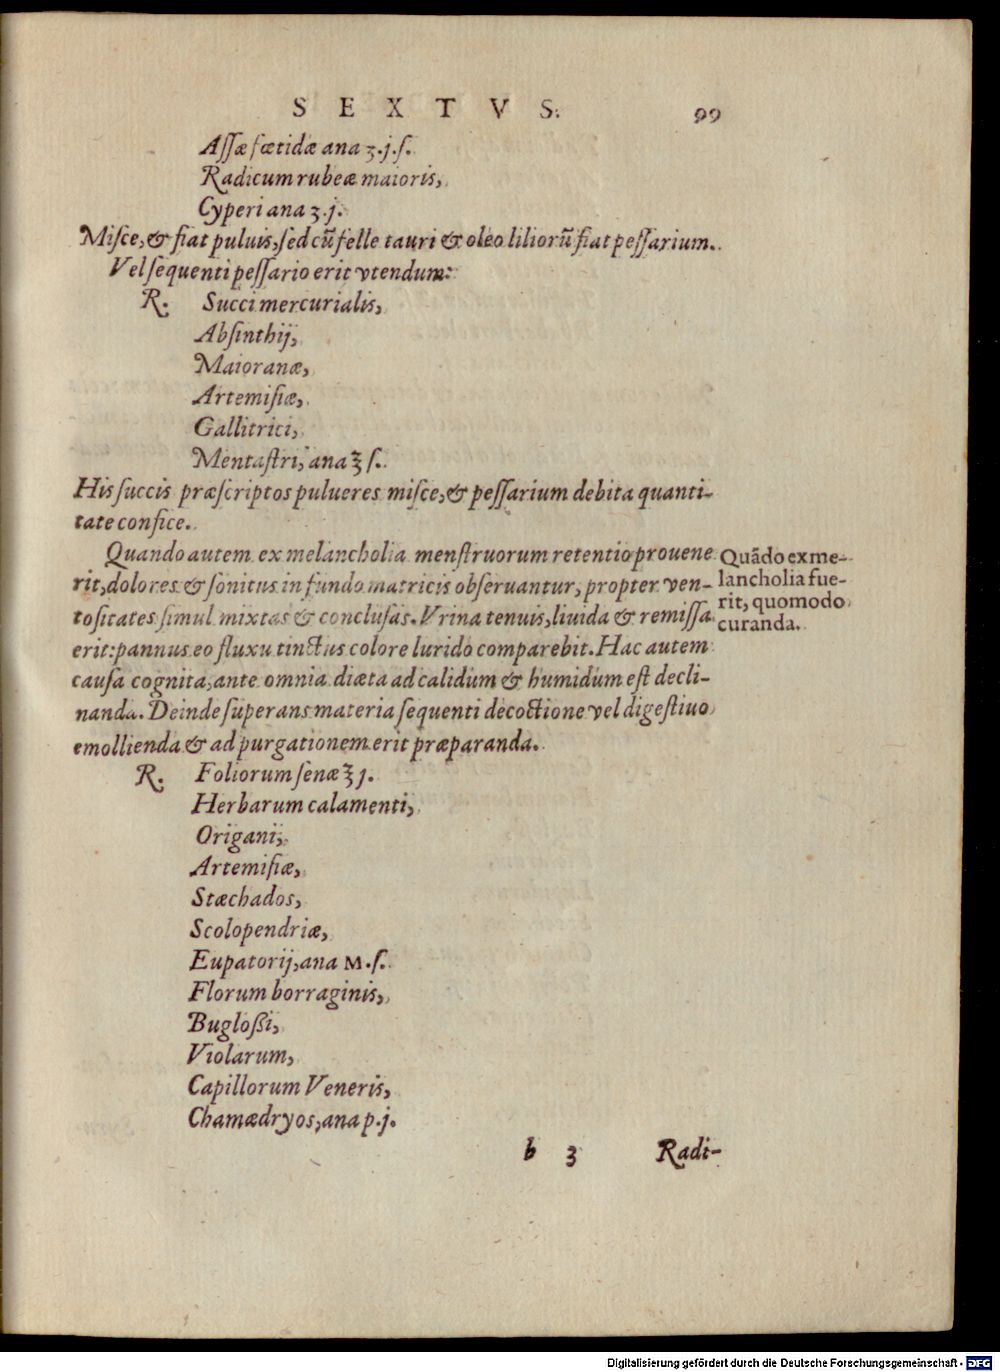 SEXTVS. 99
Aſſæ fœtidæ ana ʒ.j.ſ.
Radicum rubeæ maioris,
Cyperi ana ʒ.j.
Miſce, & fiat puluis, ſed cũ felle tauri & oleo liliorũ fiat peſſarium.
Vel ſequenti peſſario erit vtendum:
R. Succi mercurialis,
Abſinthij,
Maioranæ,
Artemiſiæ,
Gallitrici,
Mentaſtri, ana ℥ ſ.
His ſuccis præſcriptos pulueres miſce, & peſſarium debita quanti-
tate confice.
Quando autem ex melancholia menſtruorum retentio prouene
rit, dolores & ſonitus in fundo matricis obſeruantur, propter ven-
toſitates ſimul mixtas & concluſas. Vrina tenuis, liuida & remiſſa
erit: pannus eo fluxu tinctus colore lurido comparebit. Hac autem
cauſa cognita, ante omnia diæta ad calidum & humidum eſt decli-
nanda. Deinde ſuperans materia ſequenti decoctione vel digeſtiuo
emollienda & ad purgationem erit præparanda.
Quãdo ex me-
lancholia fue-
rit, quomodo
curanda.
R. Foliorum ſenæ ℥ j.
Herbarum calamenti,
Origani,
Artemiſiæ,
Stæchados,
Scolopendriæ,
Eupatorij, ana M.ſ.
Florum borraginis,
Bugloßi,
Violarum,
Capillorum Veneris,
Chamædryos, ana p.j.
b 3 Radi-
Digitalisierung gefördert durch die Deutsche Forschungsgemeinschaft - DFG